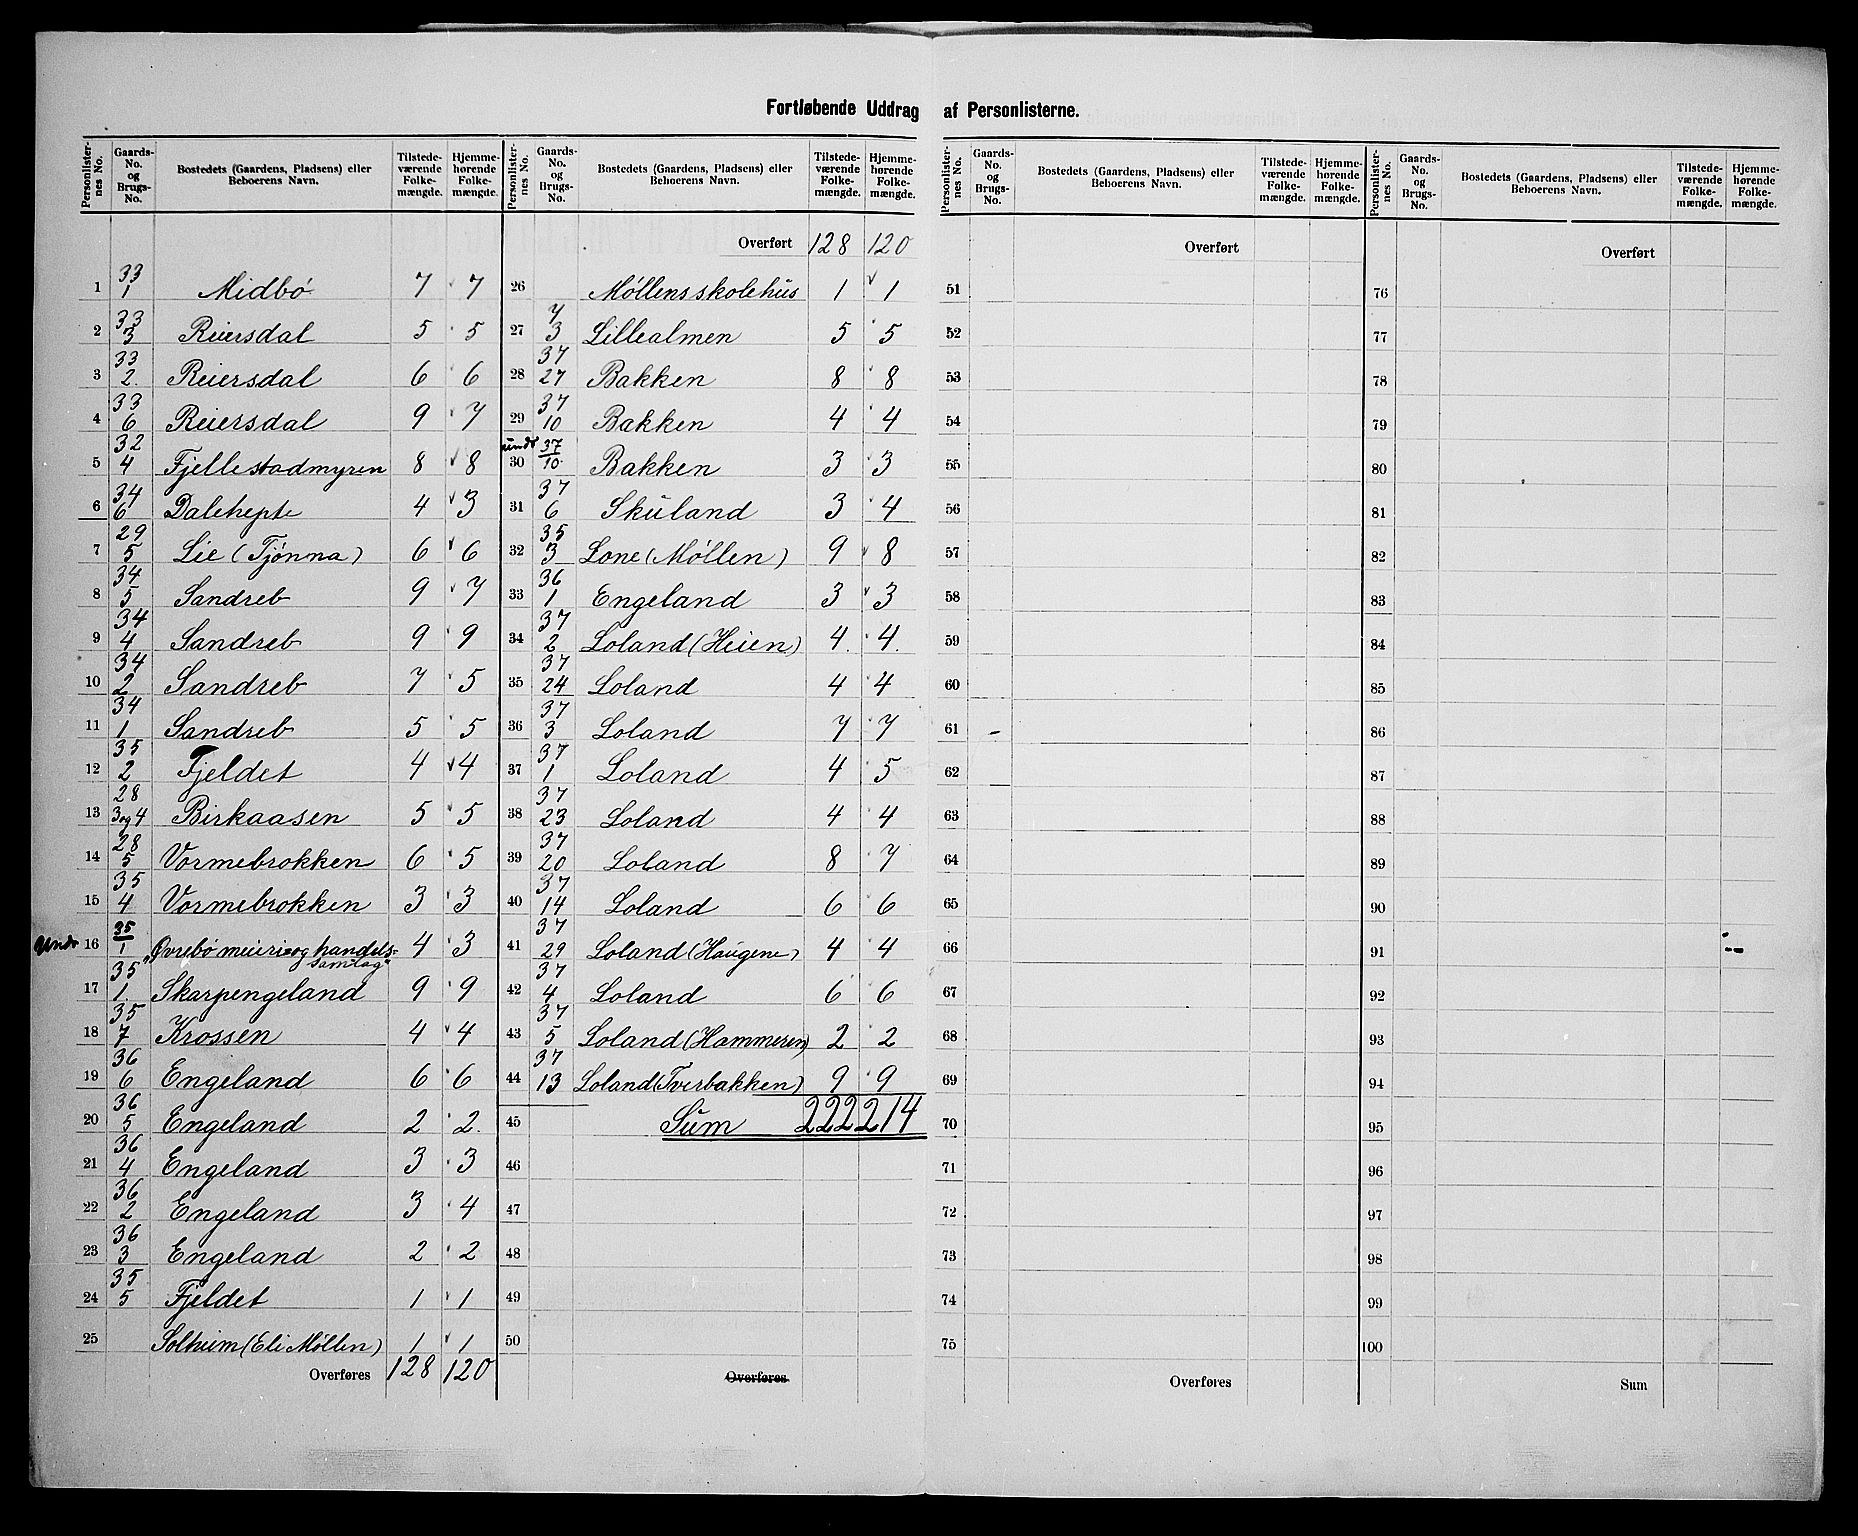 Fortløbende Uddrag af Personlisterne.
Personlister-nes No. | Gaards-No. og Brugs-No. | Bostedets (Gaardens, Pladsens) eller Beboerens Navn. | Tilstede-værende Folke-mængde. | Hjemme-hørende Folke-mængde.
1 33/1 Midbø 7 7
2 33/3 Reiersdal 5 5
3 33/2 Reiersdal 6 6
4 33/6 Reiersdal 9 7
5 32/4 Fjellestadmyren 8 8
6 34/6 Dalehepte 4 3
7 29/5 Lie (Tjønna) 6 6
8 34/5 Sandreb 9 7
9 34/4 Sandreb 9 9
10 34/2 Sandreb 7 5
11 34/1 Sandreb 5 5
12 35/2 Fjeldet 4 4
13 28/3 og 4 Birkaasen 5 5
14 28/5 Vormebrokken 6 5
15 35/4 Vormebrokken 3 3
Undr 16 35/1 "Øvrebø meieri og handels-samlag" 4 3
17 35/1 Skarpengeland 9 9
18 35/7 Krossen 4 4
19 36/6 Engeland 6 6
20 36/5 Engeland 2 2
21 36/4 Engeland 3 3
22 36/2 Engeland 3 4
23 36/3 Engeland 2 2
24 35/5 Fjeldet 1 1
25 Solheim (Eli Møllen) 1 1
Overføres 128 120
Personlister-nes No. | Gaards-No. og Brugs-No. | Bostedets (Gaardens, Pladsens) eller Beboerens Navn. | Tilstede-værende Folke-mængde. | Hjemme-hørende Folke-mængde.
Overført 128 120
26 Møllens skolehus 1 1
27 7/3 Lillealmen 5 5
28 37/27 Bakken 8 8
29 37/10 Bakken 4 4
undr 30 37/10 Bakken 3 3
31 37/6 Skuland 3 4
32 35/3 Lone (Møllen) 9 8
33 36/1 Engeland 3 3
34 37/2 Loland (Heien) 4 4
35 37/24 Loland 4 4
36 37/3 Loland 7 7
37 37/1 Loland 4 5
38 37/23 Loland 4 4
39 37/20 Loland 8 7
40 37/14 Loland 6 6
41 37/29 Loland (Haugene) 4 4
42 37/4 Loland 6 6
43 37/5 Loland (Hammeren) 2 2
44 37/13 Loland (Tverbakken) 9 9
45 Sum 222 214
46
47
48
49
50
Overføres
Personlister-nes No. | Gaards-No. og Brugs-No. | Bostedets (Gaardens, Pladsens) eller Beboerens Navn. | Tilstede-værende Folke-mængde. | Hjemme-hørende Folke-mængde.
Overført
51
52
53
54
55
56
57
58
59
60
61
62
63
64
65
66
67
68
69
70
71
72
73
74
75
Overføres
Personlister-nes No. | Gaards-No. og Brugs-No. | Bostedets (Gaardens, Pladsens) eller Beboerens Navn. | Tilstede-værende Folke-mængde. | Hjemme-hørende Folke-mængde.
Overført
76
77
78
79
80
81
82
83
84
85
86
87
88
89
90
91
92
93
94
95
96
97
98
99
100
Sum